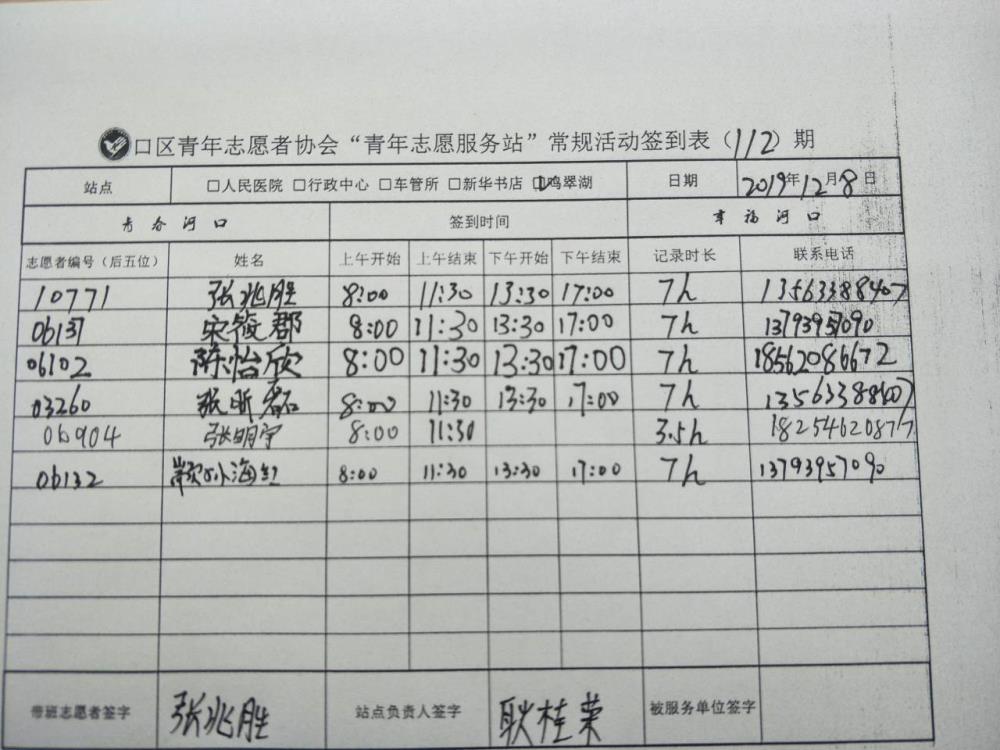 口区青年志愿者协会“青年志愿服务站”常规活动签到表（112）期
站点 □人民医院 □行政中心 □车管所 □新华书店 □鸣翠湖 日期 2019年12月8日
青春河口 签到时间 幸福河口
志愿者编号（后五位） 姓名 上午开始 上午结束 下午开始 下午结束 记录时长 联系电话
10771 张兆胜 8:00 11:30 13:30 17:00 7h 13563388407
06137 宋筱郡 8:00 11:30 13:30 17:00 7h 13793957090
06102 陈怡欣 8:00 11:30 13:30 17:00 7h 18562086672
03260 张昕磊 8:00 11:30 13:30 17:00 7h 13563388407
06904 张明宇 8:00 11:30 3.5h 18254620877
06132 海红 8:00 11:30 13:30 17:00 7h 13793957090
带班志愿者签字 张兆胜 站点负责人签字 耿桂荣 被服务单位签字